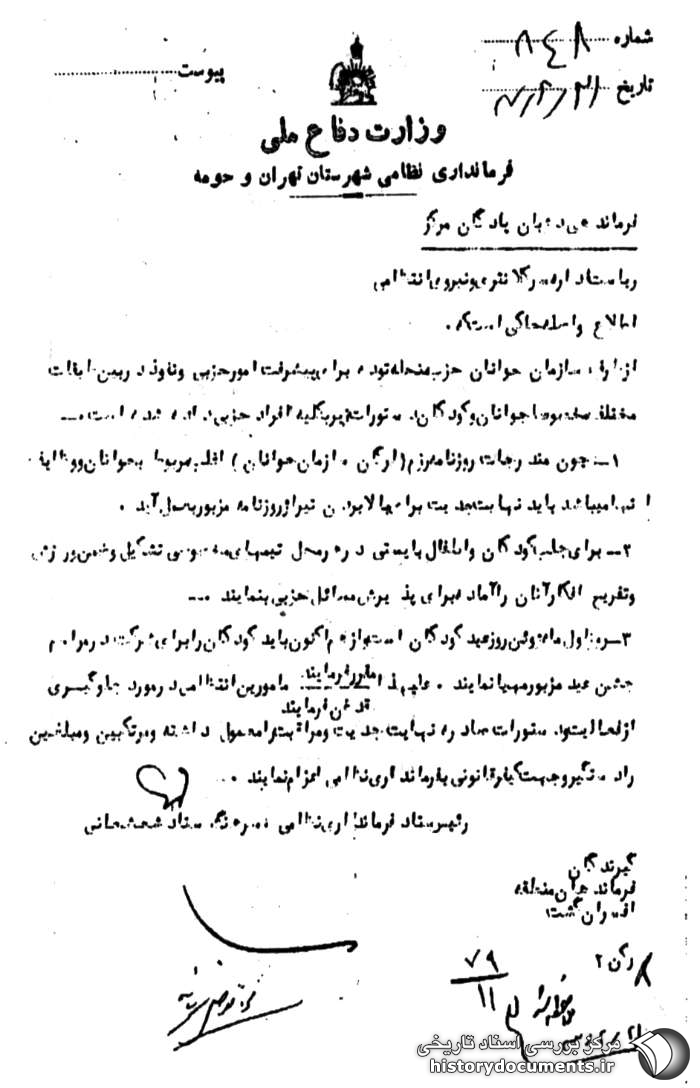 شماره ۸۴۸
تاریخ
پیوست
وزارت دفاع ملی
فرمانداری نظامی شهرستان تهران و حومه
فرماندهی دژبان پادگان مرکز
ریاست اداره سرکلانتری و نیروی انتظامی
اطلاع واصله حاکی است که .
از طرف سازمان جوانان حزب منحله توده برای پیشرفت امور حزبی و نفوذ در بین طبقات
مختلف مخصوصا جوانان و کودکان دستورات زیر بکلیه افراد حزبی داده شده است :ـ
۱ـ چون مندرجات روزنامه رزم (ارگان سازمان جوانان) اغلب مربوط بجوانان و وظایف
آنها میباشد باید نهایت جدیت برای بالا بردن تیراژ روزنامه مزبور بعمل آید .
۲ـ برای جلب کودکان و اطفال بایستی در هر محل تیمهای مخصوصی تشکیل و ضمن ورزش
و تفریح افکار آنان را آماده برای پذیرش مسائل حزبی بنمایند .ـ
۳ـ روز اول ماه ژوئن روز عید کودکان است و از هم اکنون باید کودکان را برای شرکت در مراسم
جشن عید مزبور مهیا نمایند . علیهذا مقرر فرمایند مامورین انتظامی در مورد جلوگیری
قدغن فرمایند
از فعالیت و دستورات صادره نهایت جدیت و مراقبت را معمول داشته و مرتکبین و مبلغین
را دستگیر و جهت کیفر قانونی بفرمانداری نظامی اعزام نمایند .
رئیس ستاد فرمانداری نظامی سرهنگ ستاد شعشعانی
گیرندگان
فرماندهان منطقه
افسران گشت
رکن ۲
۷۹
۱۱
مرکز بررسی اسناد تاریخی
historydocuments.ir